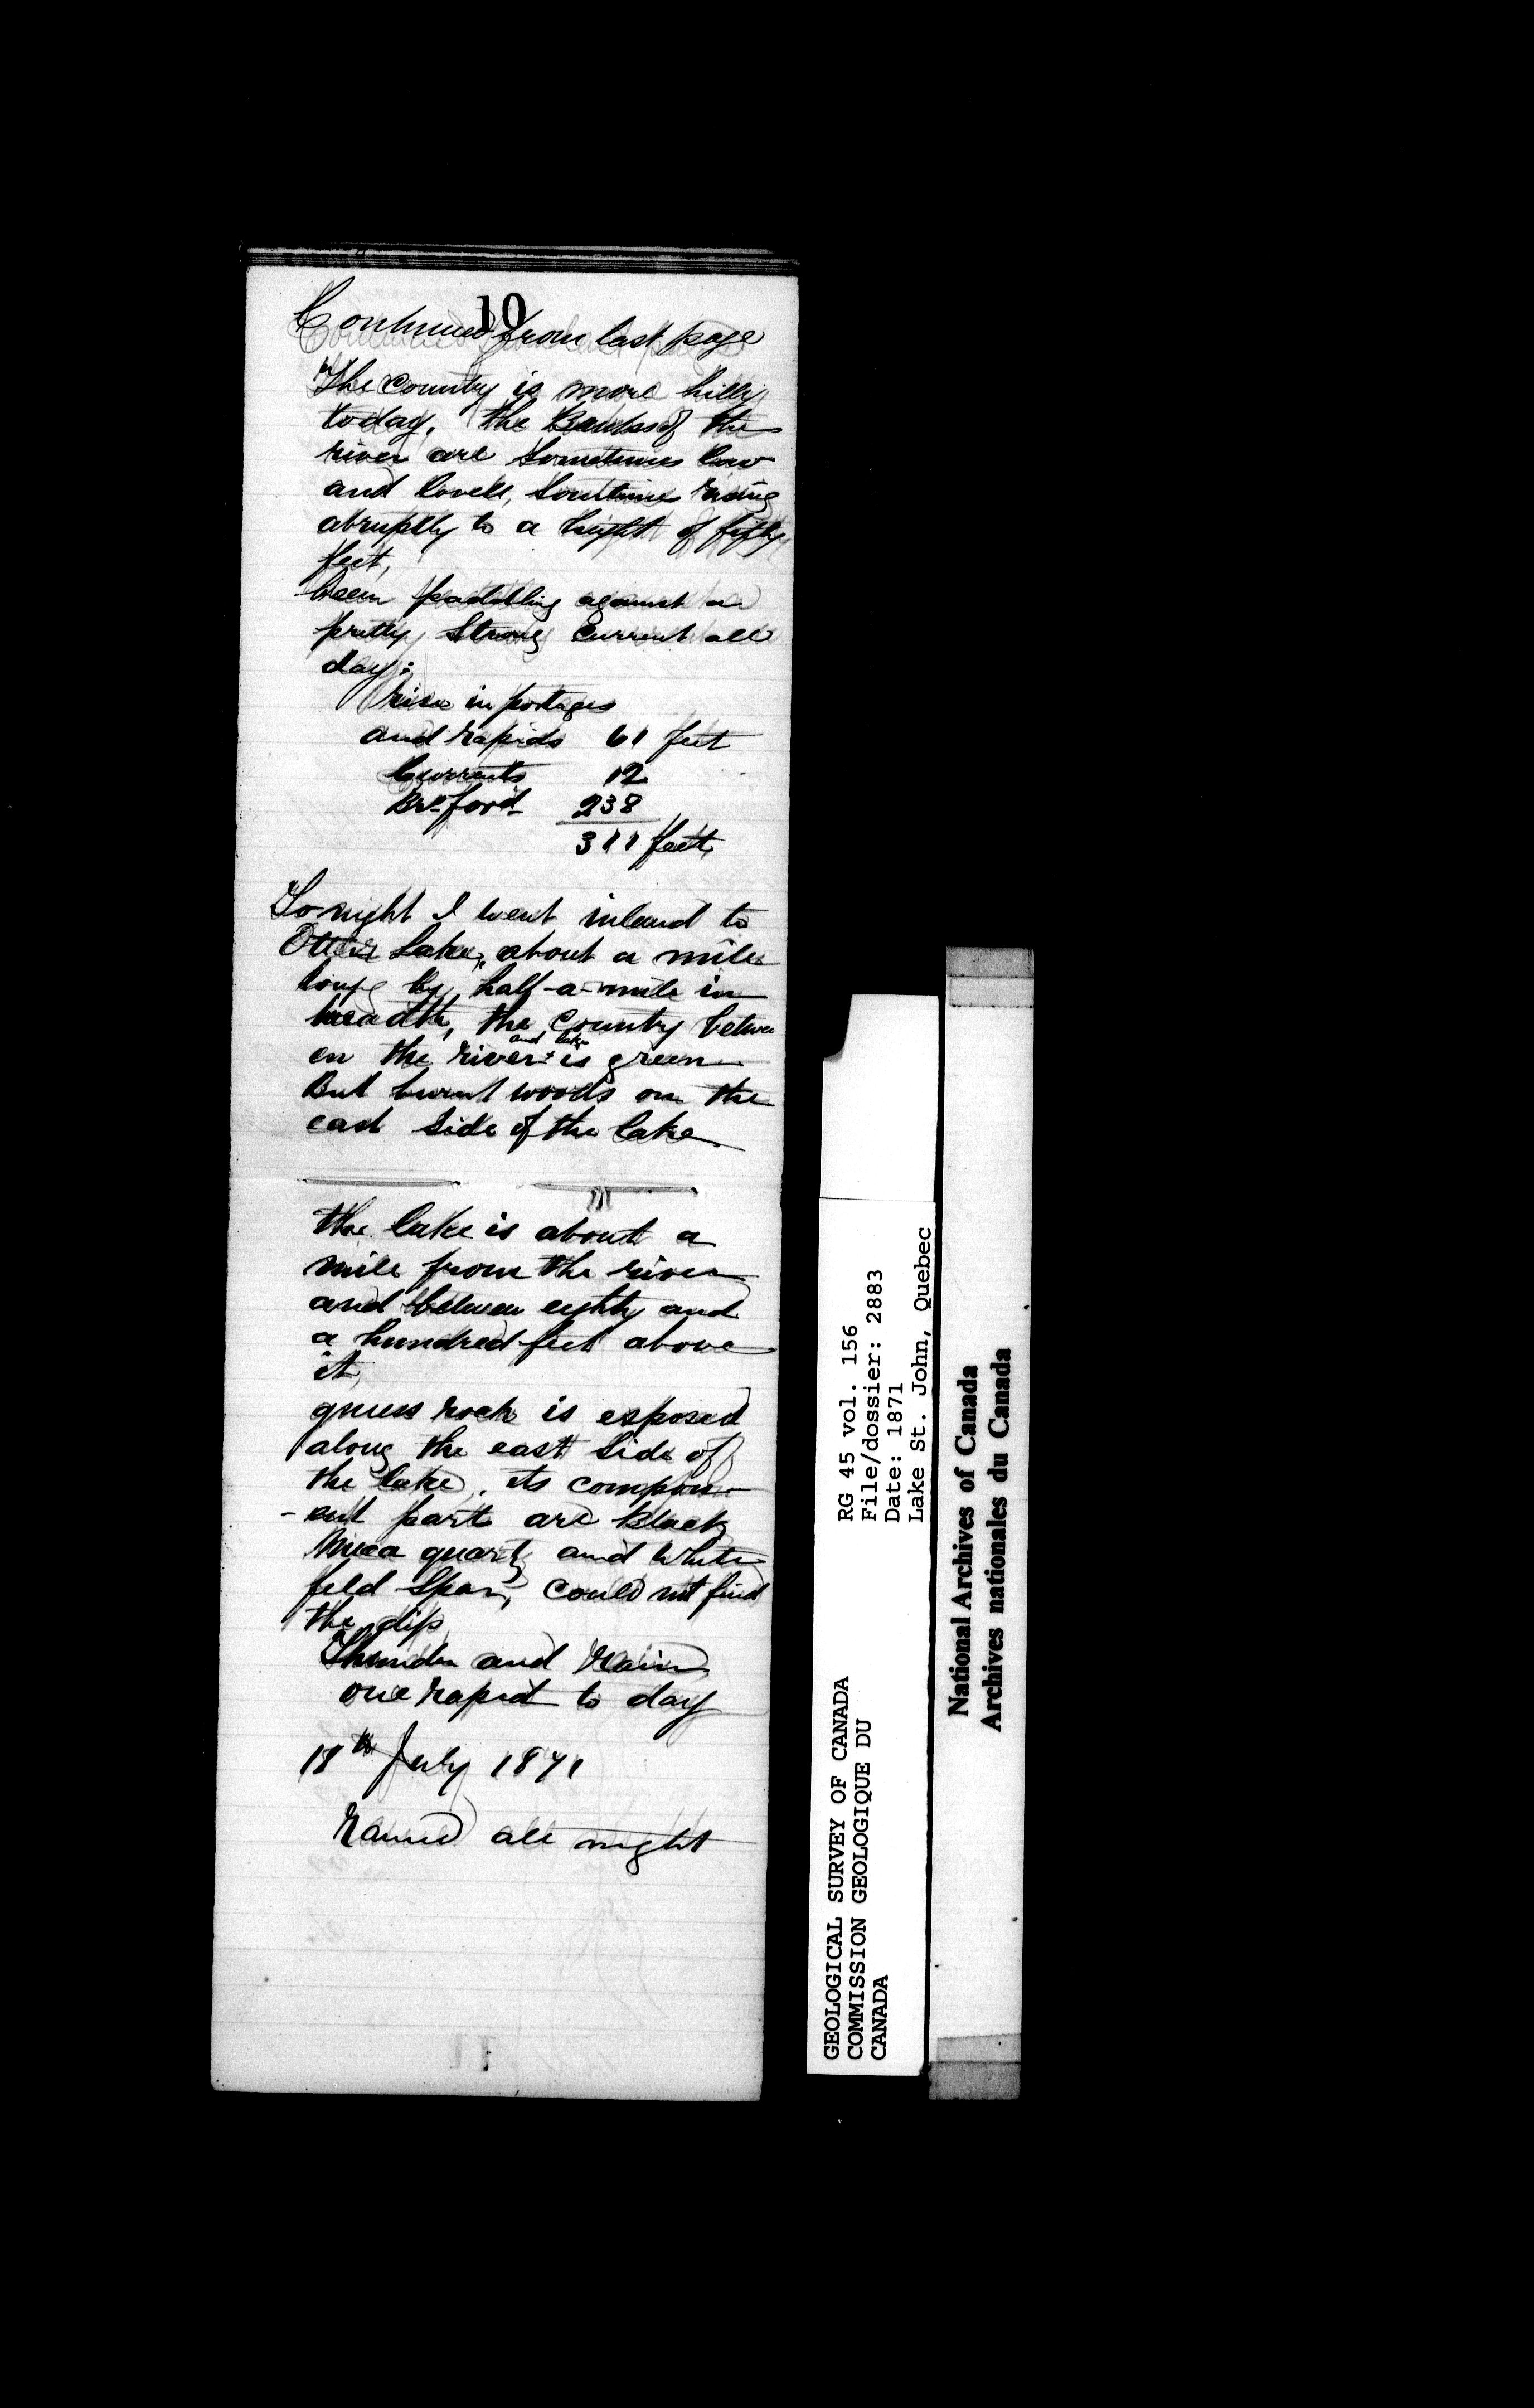 10
Continued from last page
The Country is more hilly
today. the Banks of the
river are Sometimes low
and levell, Sometimes rising
abruptly to a height of fifty
feet,
been paddling against a
pretty Strong Current all
day:
rise in portages
and rapids 61 feet
Currents 12
Brt. forrd. 238
311 feet,
To night I went inland to
Otter Lake, about a mile
long by half-a-mile in
breadth, the Country betwe
en the river and lake is green
But burnt woods on the
east Side of the lake
the lake is about a
mile from the river
and between eighty and
a hundred feet above
it,
gneiss rock is exposed
along the east Side of
the lake, its compon
-ent parts are black
Mica quartz and White
feld Spar, Could not find
the dip
Thunder and rain
one rapid to day
18th July 1871
rained all night
GEOLOGICAL SURVEY OF CANADA
COMMISSION GEOLOGIQUE DU
CANADA
RG 45 vol. 156
File/dossier: 2883
Date: 1871
Lake St. John, Quebec
National Archives of Canada
Archives nationales du Canada